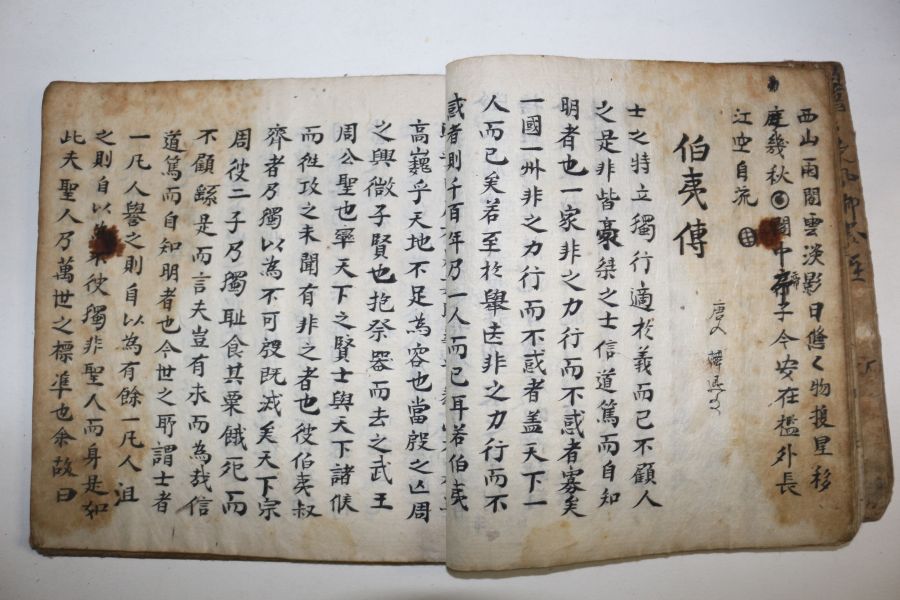 西山雨閒雲淡影日悠〻物換星移
度幾秋閣中帝子今安在檻外長
江空自流
伯夷傳
唐人
士之特立獨行適於義而已不顧人
之是非皆豪桀之士信道篤而自知
明者也一家非之力行而不惑者寡矣
一國一州非之力行而不惑者盖天下一
人而已矣若至於舉世非之力行而不
惑者則千百年乃一人而已耳若伯夷
高巍乎天地不足為容也當殷之亡周
之興微子賢也抱祭器而去之武王
周公聖也率天下之賢士與天下諸侯
而徃攻之未聞有非之者也彼伯夷叔
齊者乃獨以為不可殷既滅矣天下宗
周彼二子乃獨耻食其粟餓死而
不顧繇是而言夫豈有求而為哉信
道篤而自知明者也今世之所謂士者
一凡人譽之則自以為有餘一凡人沮
之則自以彼獨非聖人而自是如
此夫聖人乃萬世之標準也余故曰